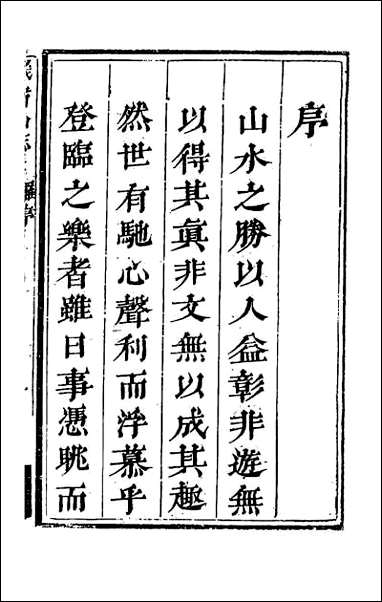 序
山水之勝以人益彰非遊無
以得其眞非文無以成其趣
然世有馳心聲利而浮慕乎
登臨之樂者雖日事憑眺而